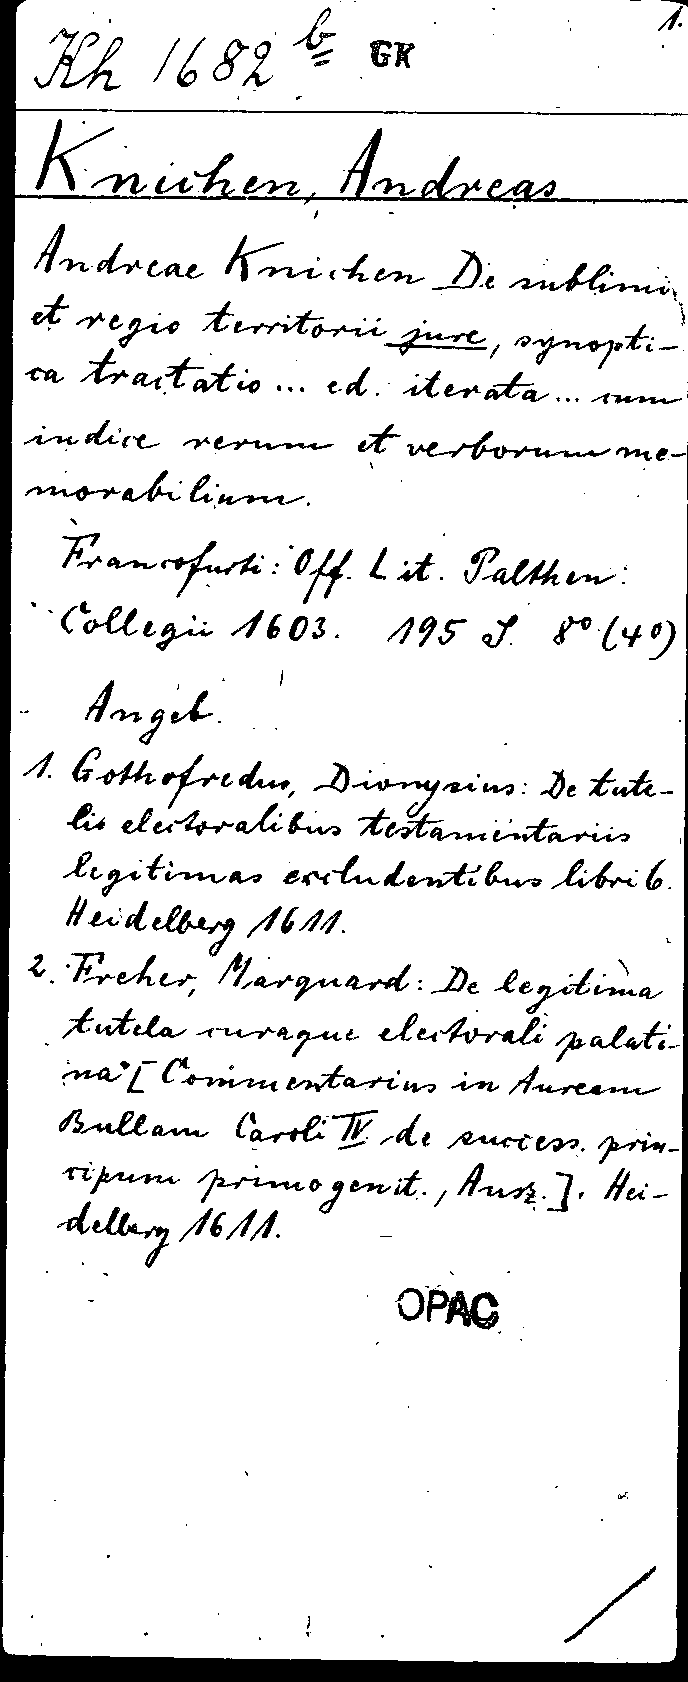 1.
Kh 1682 b GK
Knichen, Andreas
Andreae Knichen De sublimi
et regio territorii jure, synopti-
ca tractatio... ed. iterata... cum
indice rerum et verborum me-
morabilium.
Francofurti: Off. Lit. Palthen:
Collegii 1603. 195 S. 8° (4°)
Angeb.
1. Gothofredus, Dionysius: De tute-
lis electoralibus testamentariis
legitimas excludentibus libri 6.
Heidelberg 1611.
2. Freher, Marquard: De legitima
tutela curaque electorali palati-
na [Commentarius in Auream
Bullam Caroli IV de success. prin-
cipum primogenit., Ausz.]. Hei-
delberg 1611.
OPAC